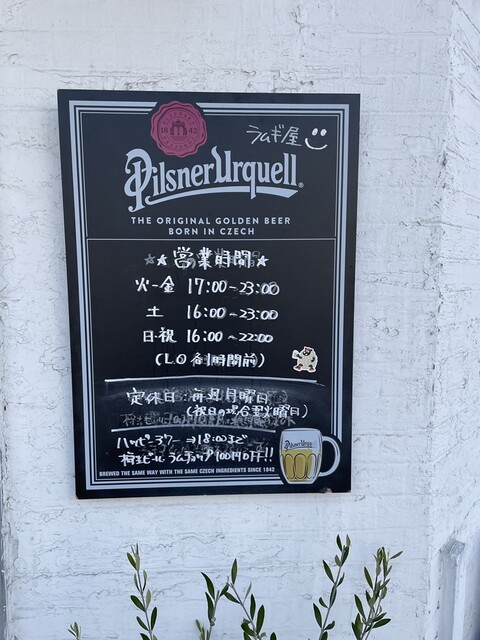 1842
ラムギ屋
Pilsner Urquell
THE ORIGINAL GOLDEN BEER
BORN IN CZECH
★★営業時間★
火-金 17:00-23:00
土 16:00~23:00
日祝 16:00~22:00
(LO各1時間前)
定休日:毎週月曜日
(祝日の場合翌火曜日)
ハッピーアワー→18:00まで
樽生ビール ラムチョップ100円OFF!!
BREWED THE SAME WAY WITH THE SAME CZECH INGREDIENTS SINCE 1842
Pilsner Urquell